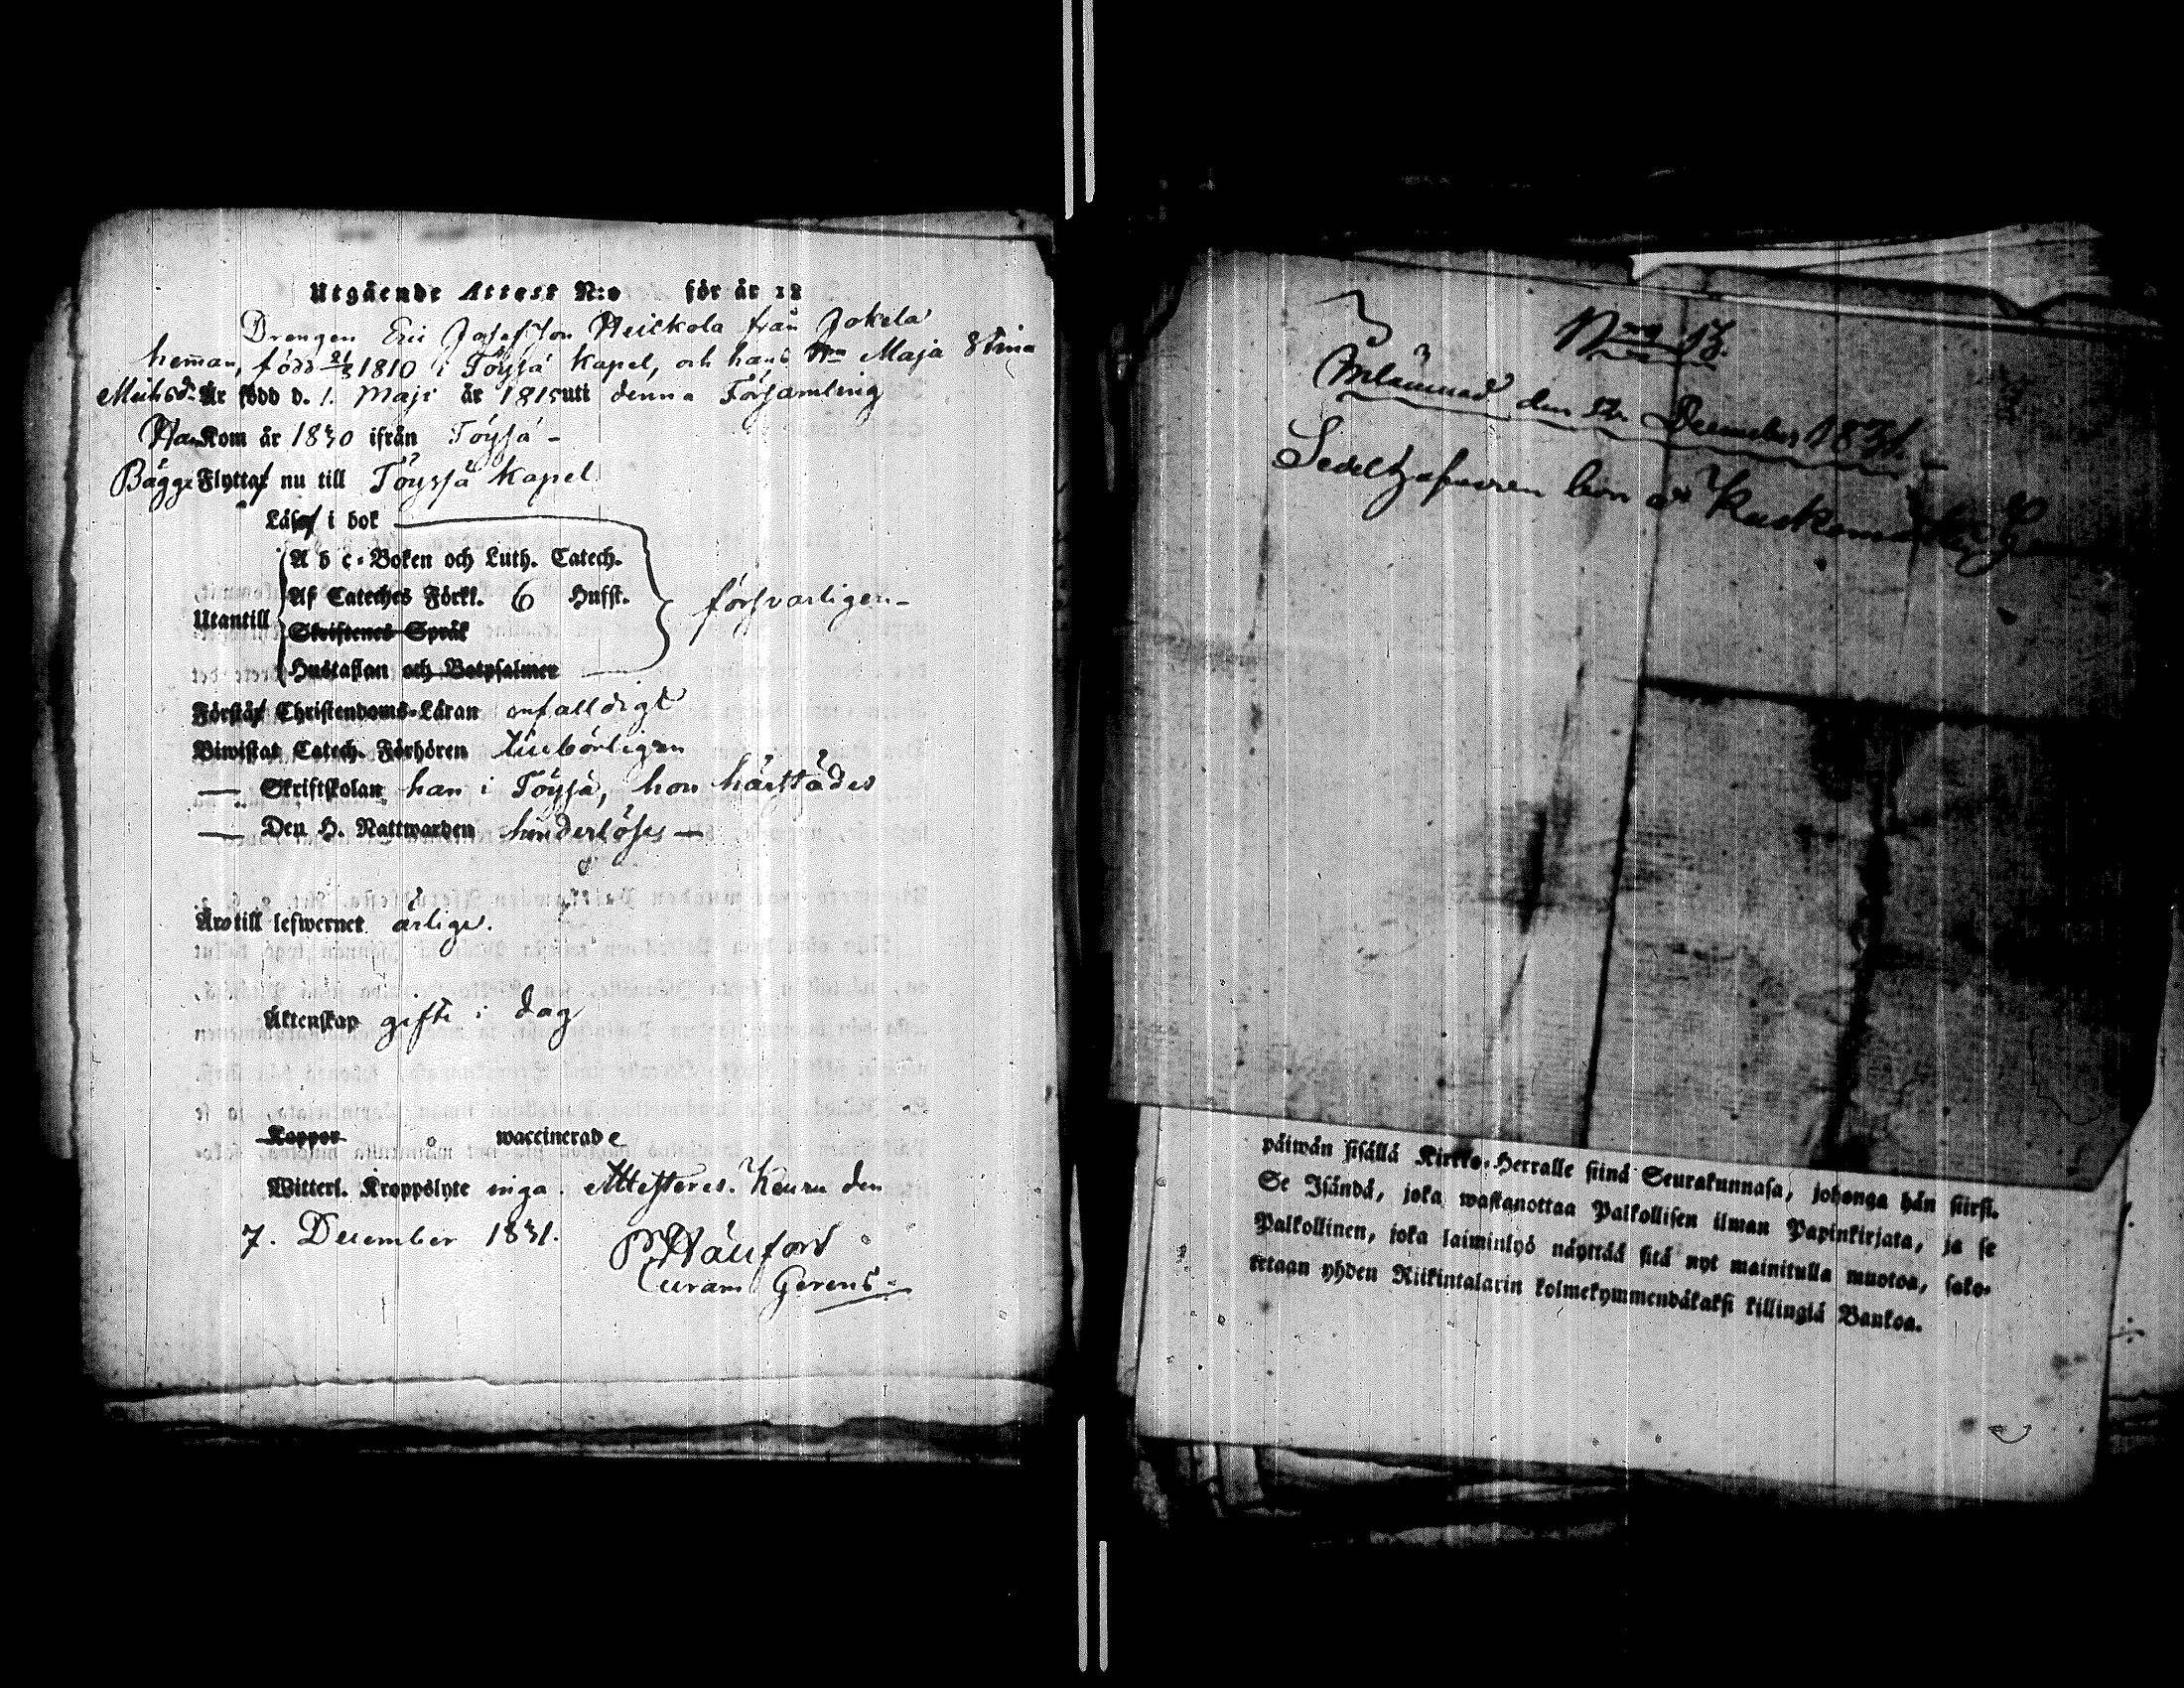 Utgående Attest N:o för år 18
Drengen Eric Josefsson Heickola från Jokela
heman, född 21/3 1810 i Töysä Kapel, och hans Hu Maja Stina
Michsdr Är född d. 1. Maji år 1815 uti denna Församling
Han Kom år 1830 ifrån Töysä -
Bägge Flytta nu till Töysä Kapel
Läsa i bok
A b c-Boken och Luth. Catech.
Af Cateches Förkl. 6 Hufst. försvarligen -
Utantill
Skriftenes Språk
Hustaflan och Botpsalmer
Förstå Christendoms-Läran enfalldigt
Biwistat Catech. Förhören tilbörligen
— Skriftskolan han i Töysä, hon härstädes
— Den H. Nattwarden hinderlöse —
Äro till lefwernet ärlige.
Äktenskap gifte i dag
Koppor waccinerade
Witterl. Kroppslyte inga. Attesteres. Keuru den
7. December 1831.
Curam Gerens
N:o 13.
Inlämnad den December 1831.
päiwän sisällä Kirkko-Herralle siinä Seurakunnasa, johonga hän siirs.
Se Isändä, joka wastanottaa Palkollisen ilman Papinkirjata, ja se
Palkollinen, joka laiminlyö näyttää sitä nyt mainitulla muotoa, sako-
tetaan yhden Riikintalarin kolmekymmendäkaksi killingiä Bankoa.